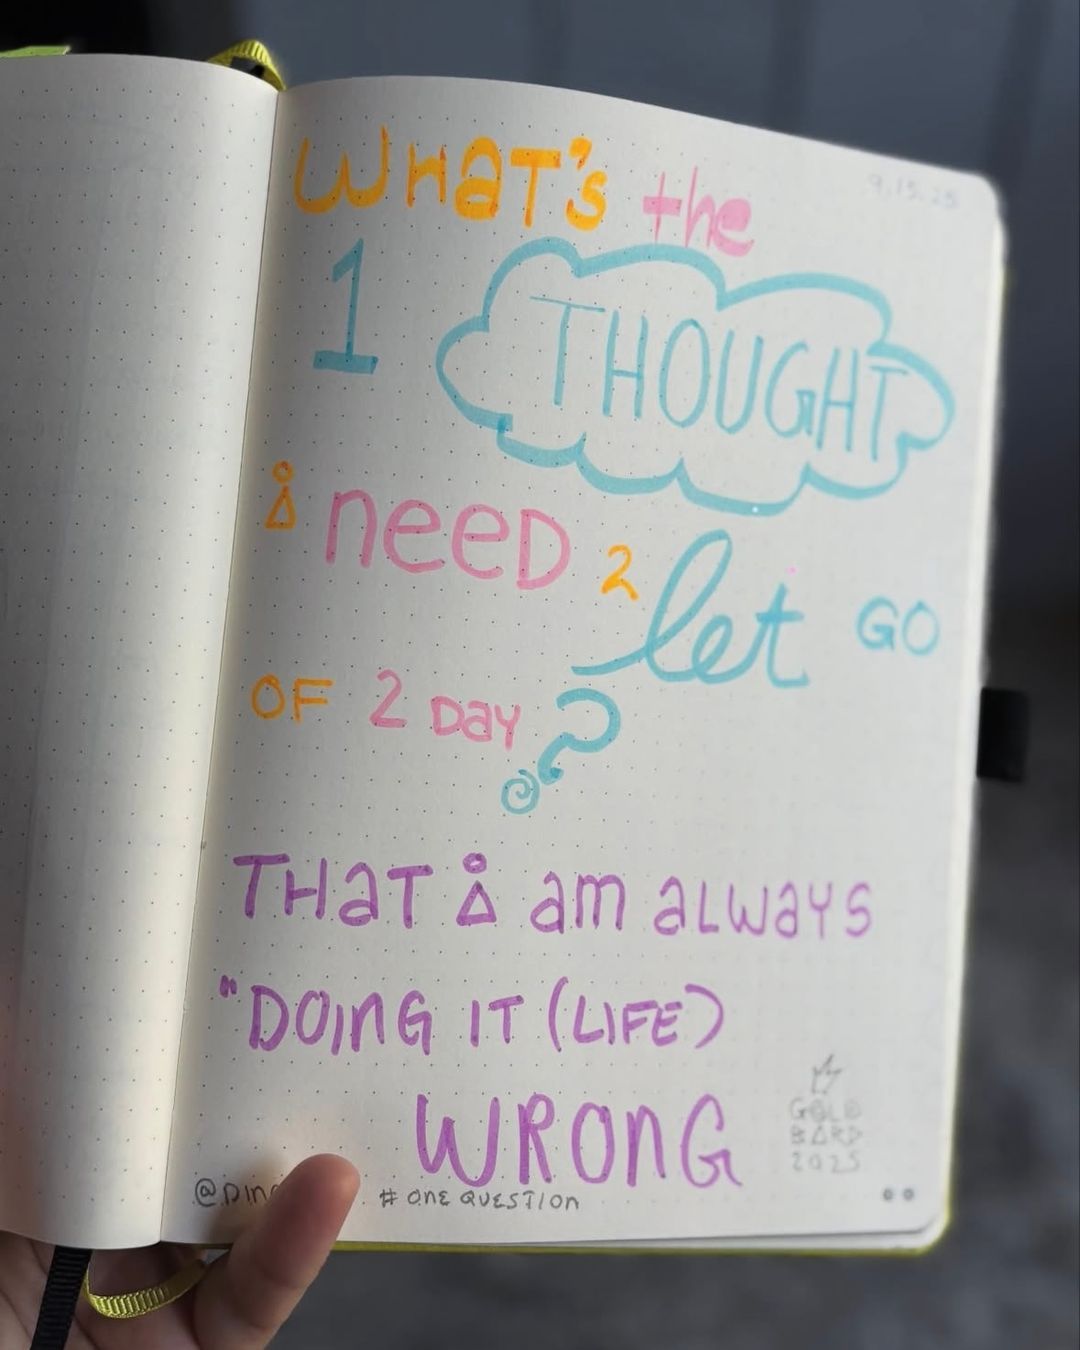 WHAT'S the
9.15.25
1 THOUGHT
i NEED 2 let GO
OF 2 DAY?
THAT i am ALWAYS
"DOING IT (LIFE)
WRONG
GOLD
BARD
2025
# ONE QUESTION